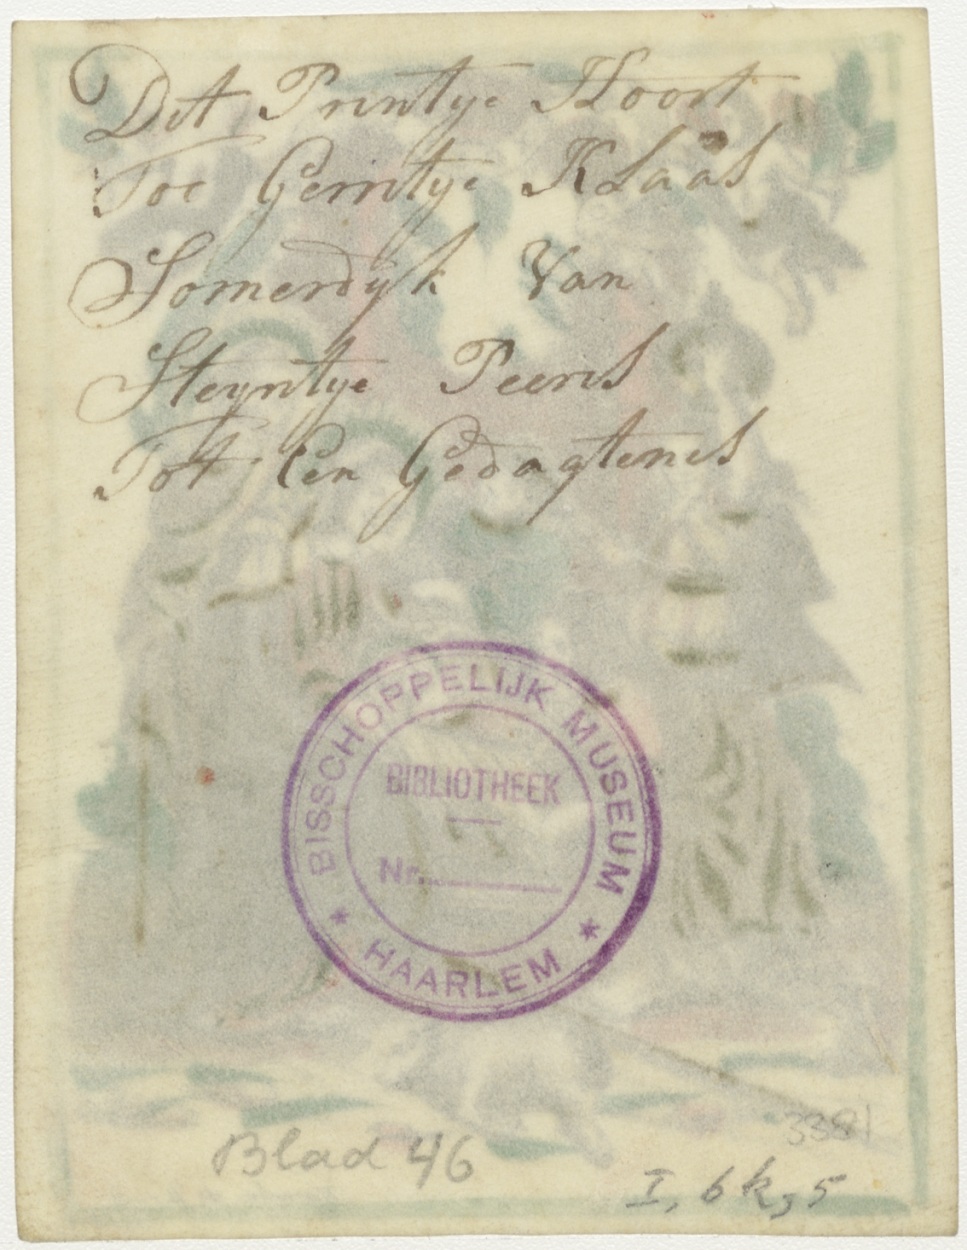 Dit Printye Hoort
Toe Gerritye Klaas
Somerdyk Van
Steyntye Peers
Tot Een Gedagtenis
BISSCHOPPELIJK MUSEUM
* HAARLEM *
BIBLIOTHEEK
Nr.
3381
Blad 46
I, 6k, 5